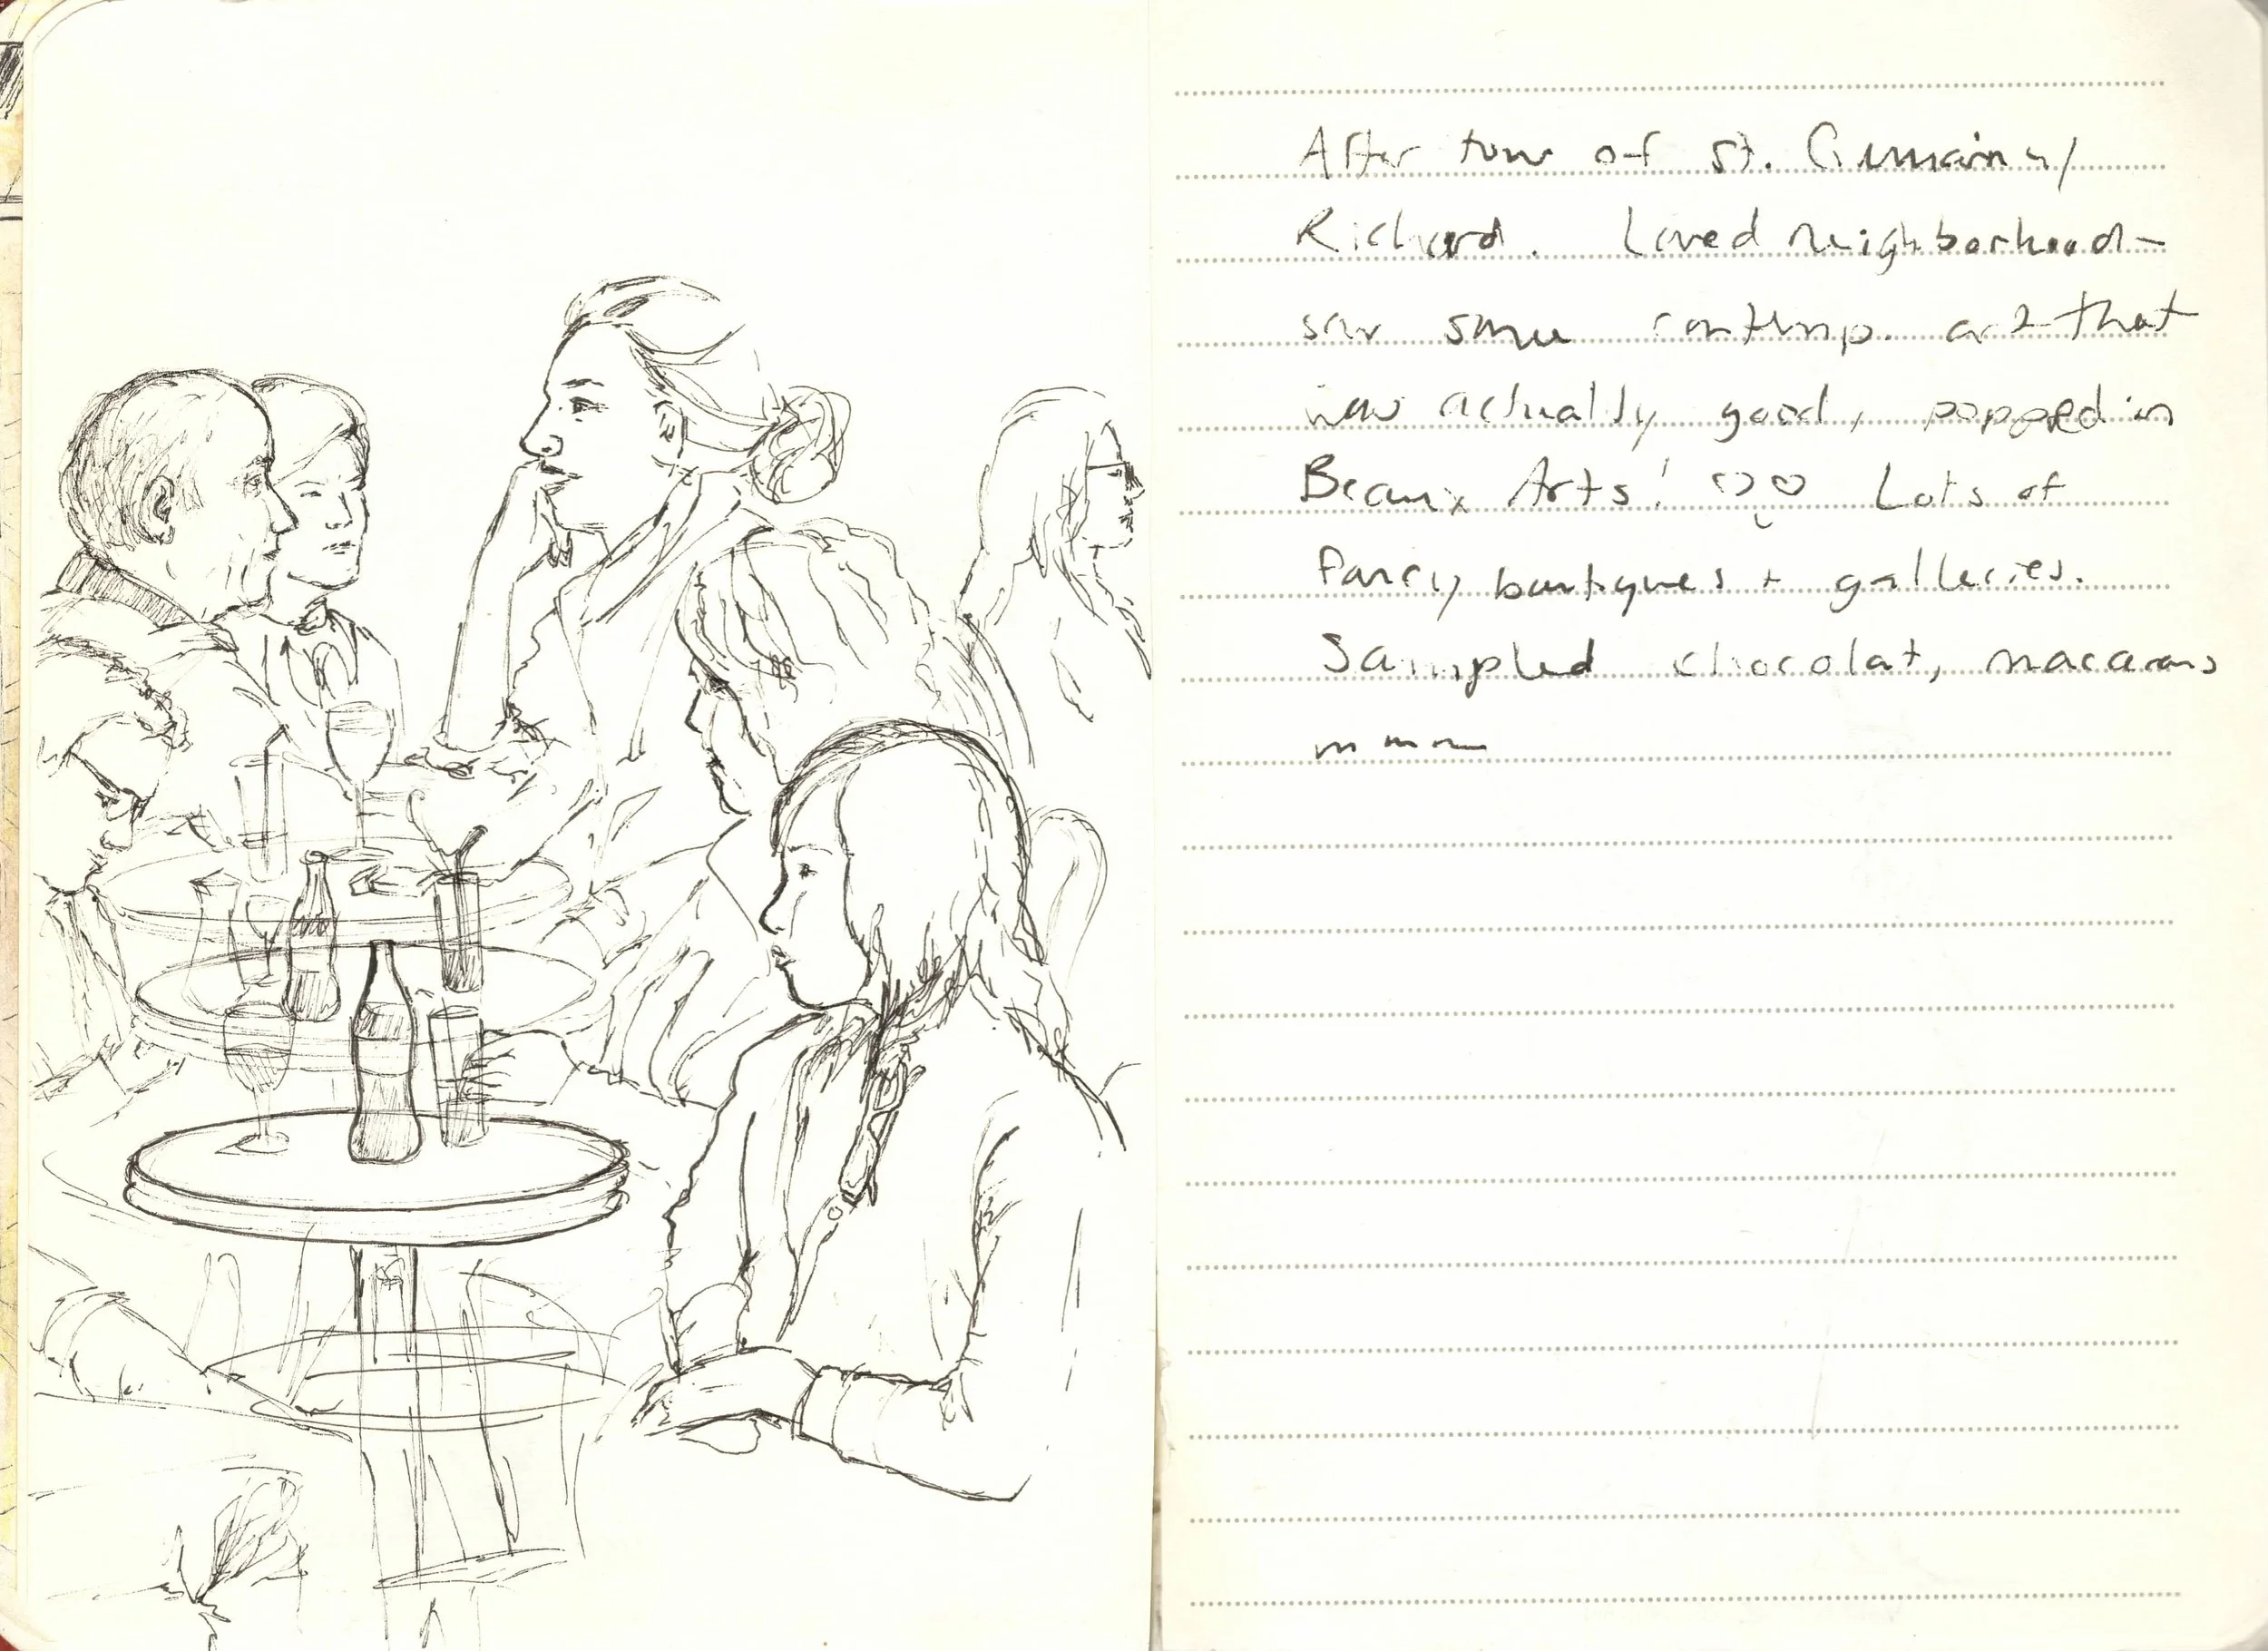 After tour of St. Germain w/
Richard. Loved neighborhood-
saw some contemp. art that
was actually good, popped in
Beaux Arts! ♡♡ Lots of
fancy boutiques + galleries.
Sampled chocolat, macarons
mmm